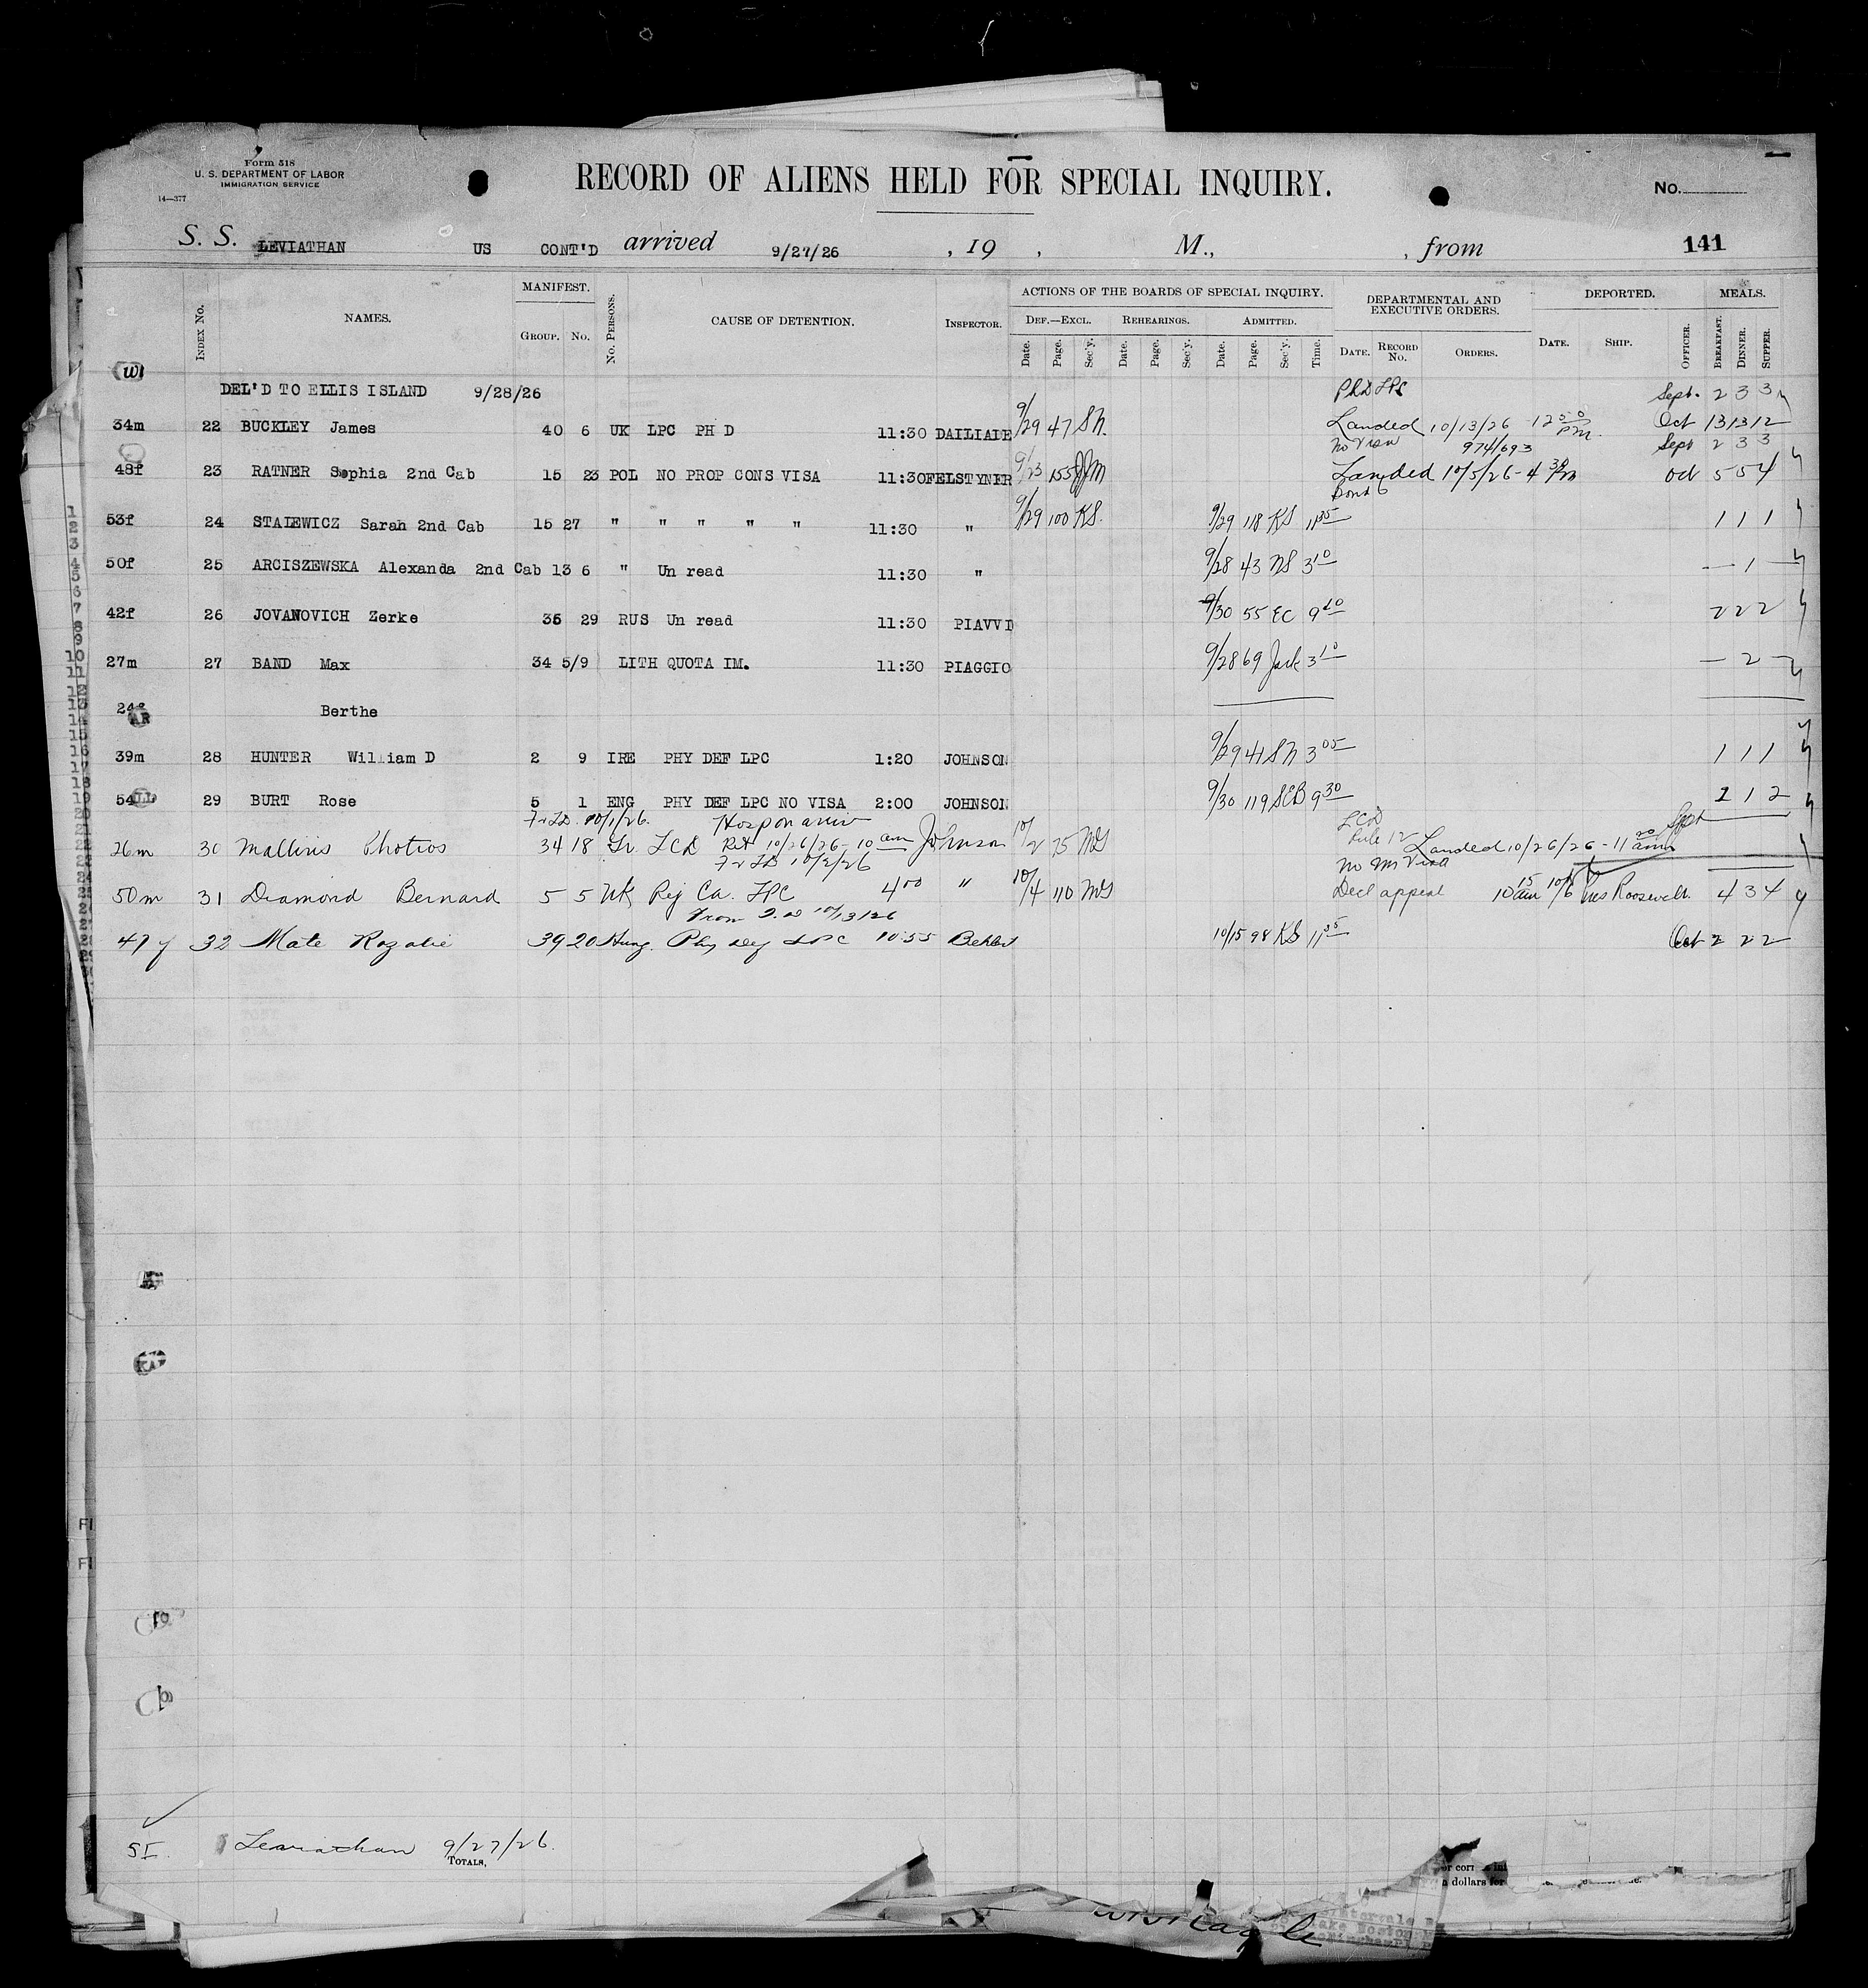 Form 518
U. S. DEPARTMENT OF LABOR
IMMIGRATION SERVICE
14—377
RECORD OF ALIENS HELD FOR SPECIAL INQUIRY.
No.
S. S. LEVIATHAN US CONT'D arrived 9/27/26 , 19 , M., , from 141
Index No. NAMES. MANIFEST. Group. No. No. Persons. CAUSE OF DETENTION. Inspector. ACTIONS OF THE BOARDS OF SPECIAL INQUIRY. Def.—Excl. Date. Page. Sec'y. Rehearings. Date. Page. Sec'y. Admitted. Date. Page. Sec'y. Time. DEPARTMENTAL AND EXECUTIVE ORDERS. Date. Record No. Orders. DEPORTED. Date. Ship. Officer. MEALS. Breakfast. Dinner. Supper.
W
DEL'D TO ELLIS ISLAND 9/28/26 Ph D LPC Sept. 2 3 3
34m 22 BUCKLEY James 40 6 UK LPC PH D 11:30 9/29 47 SN. Landed 10/13/26 12 50 PM. Oct 13 13 12
No Visa 974/693 Sept 2 3 3
48f 23 RATNER Sophia 2nd Cab 15 23 POL NO PROP CONS VISA 11:30 FELSTYNER 155 Landed 10/5/26 - 4 30 Pm Oct 5 5 4
Bond
53f 24 STALEWICZ Sarah 2nd Cab 15 27 " " " " " 11:30 " 9/29 100 KS. 9/29 118 KS 11 35 1 1 1
50f 25 ARCISZEWSKA Alexanda 2nd Cab 13 6 " Un read 11:30 " 9/28 43 NS 3 10 — 1 —
42f 26 JOVANOVICH Zerke 36 29 RUS Un read 11:30 PIAVVI 9/30 55 EC 9 40 2 2 2
27m 27 BAND Max 34 5/9 LITH QUOTA IM. 11:30 PIAGGIO 9/28 69 Jack 3 10 — 2 —
24f Berthe
39m 28 HUNTER William D 2 9 IRE PHY DEF LPC 1:20 JOHNSON 9/29 41 SN 3 05 1 1 1
54 29 BURT Rose 5 1 ENG PHY DEF LPC NO VISA 2:00 JOHNSON 9/30 119 SEB 9 30 2 1 2
10/1/26. Hosp on arriv LCD
26m 30 Malliris Photios 34 18 Gr. LCD Ret 10/26/26 - 10 am Johnson 10/2 75 MG Rule 12 Landed 10/26/26 - 11 20 am Sept
10/2/26 No Im Visa
50m 31 Diamond Bernard 5 5 UK Rej Ca. LPC 4 00 " 10/4 110 MG Decl appeal 10 15 am 10/6 Pres Roosevelt. 4 3 4
From 10/13/26
47f 32 Mate Rozalie 39 20 Hung. Phy Def LPC 10:55 10/15 98 KS 11 35 Oct 2 2 2
SI. Leviathan 9/27/26.
Totals,
dollars for